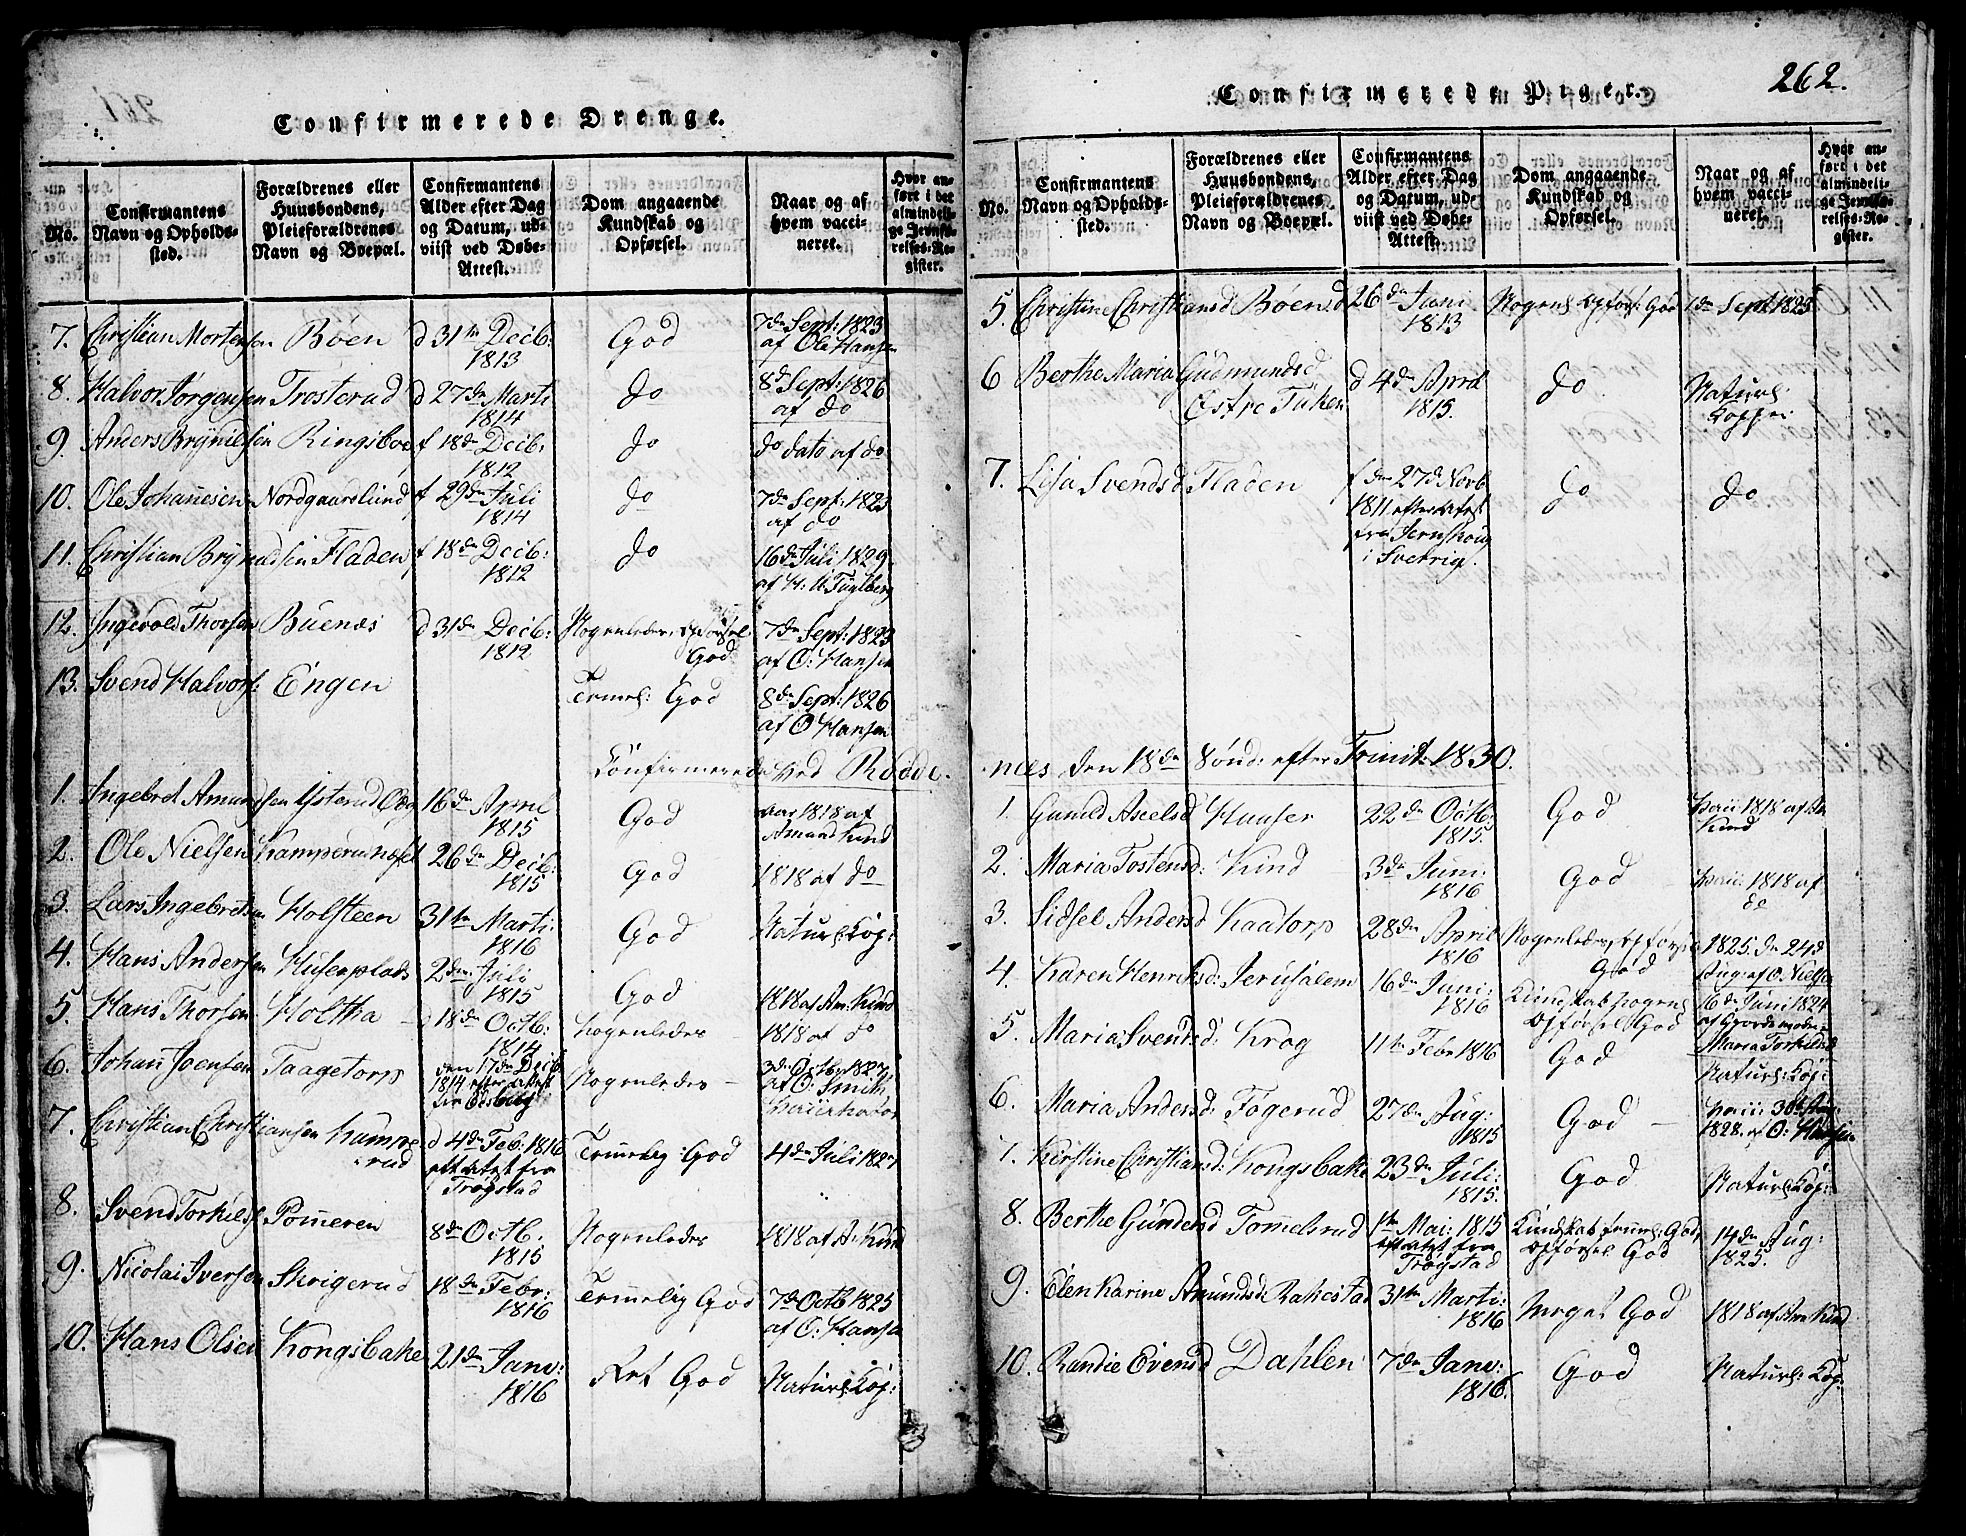 Confirmerede Drenge.
No.
Confirmantens Navn og Opholds-sted.
Forældrenes eller Huusbondens, Pleieforældrenes Navn og Boepæl.
Confirmantens Alder efter Dag og Datum, ud-viist ved Døbe-Attest.
Dom angaaende Kundskab og Opførsel.
Naar og af hvem vacci-neret.
Hvor an-ført i det almindeli-ge Jevnfø-relses-Re-gister.
7. Christian Mortensen Bøen d 31te Decb: 1813 God 7de Sept: 1823 af Ole Hansen
8. Halvor Jørgensen Trosterud d 27de Marti 1814 do 8d Sept: 1826 af do
9. Anders Brynilsen Ringsboe f 18de Decb: 1812 do do dato af do
10. Ole Johannesen Nordgaarslund f 29de Juli 1814 do 7de Sept: 1823 af do
11. Christian Brynildsen Fladen f 18de Decb: 1812 do 16de Juli 1829 af H: U Fuglberg
12. Ingevold Thorsen Buenæs d 31de Decb: 1812 Nogenledes, Opførsel God 7de Sept: 1823 af O: Hansen
13. Svend Halvors: Engen Temel: God 8de Sept: 1826 af O Hansen
Confirmerede ved Rødde-
1. Ingebret Amundsen Ysterud 16de April 1815 God aar 1818 af Amund Kind
2. Ole Nielsen 26de Decb: 1815 God 1818 af do
3. Lars Ingebretsen Holsteen 31te Marti 1816 God Naturl: Kop:
4. Hans Andersen Huserplads 2den Juli 1815 God 1818 af Am: Kind
5. Hans Thorsen Holtha d 18de Octb: 1814 Nogenledes 1818 af do
6. Johan Joensen Taagetorp den 17de Decb 1814 efter Attest fra Edsberg Nogenledes - 3de Octbr 1827, af O: Smith
7. Christian Christiansen Kamperud d 4de Feb: 1816 eft Attest fra Trøgstad Temelig God 4de Juli 1827
8. Svend Torkilds: Pomeren 8de Octb. 1815 Nogenledes 1818 af A: Kind
9. Nicolai Iversen Skrigerud 18de Febr: 1816 Temelig God 7de Octb 1825 af O: Hansen
10. Hans Olsen Kongsbake 21de Janv: 1816 Ret God Naturl: Kop:
262.
Confirmerede Piger.
No.
Confirmantens Navn og Opholds-sted.
Forældrenes eller Huusbondens, Pleieforældrenes Navn og Boepæl.
Confirmantens Alder efter Dag og Datum, ud-viist ved Døbe-Attest.
Dom angaaende Kundskab og Opførsel.
Naar og af hvem vacci-neret.
Hvor an-ført i det almindeli-ge Jevnfø-relses-Re-gister.
5. Christine Christiansd Bøen d 26de Juni 1813 Nogenl Opførs: God 1de Sept 1823
6 Berthe Maria Gudmundsd Østre Tuken d 4de April 1815. do Naturl: Kopper
7. Lisa Svendsd Fladen f den 27d Novb 1811 efter Attest fra Jernskoug i Sverrig. do do
-næs den 18de Sønd: efter Trinit: 1830.
1. Gunild Axelsd Hauser 22de Octb: 1815. God 1818 af Am Kind
2. Maria Tostensd: Kind 3de Juni 1816 God 1818 af do
3. Sidsel Andersd Kaatorp 28de April 1816 Nogenledes, Opførsel God 1825 de 24d Aug: af O. Nielsen
4. Karen Henriksd: Jerusalem 16de Juni: 1816 Kundskab Nogenl Opførsel God 16de Juni 1824 af Gjordemoder Maria Torkildsd
5. Maria Svendsd: Krog 11te Febr 1816 God Naturl: Kop:
6. Maria Andersd: Føgerud 27de Aug: 1815 God - 30te Aug: 1828. af O: Hansen
7. Kirstine Christiansd: Kongsbake 23de Juli: 1815. God Naturl: Kop:
8. Berthe Gundersd Tomelsrud 1te Mai: 1815 eft Attest fra Trøgstad Kundskab temel: God, Opførsel God 14de Aug: 1825.
9. Elen Karine Amundsd: Rakestad 31te Marti: 1816 Meget God 1818 af Am Kind
10. Randie Evensd Dahlen 7de Janv: 1816. God Naturl: Kop: